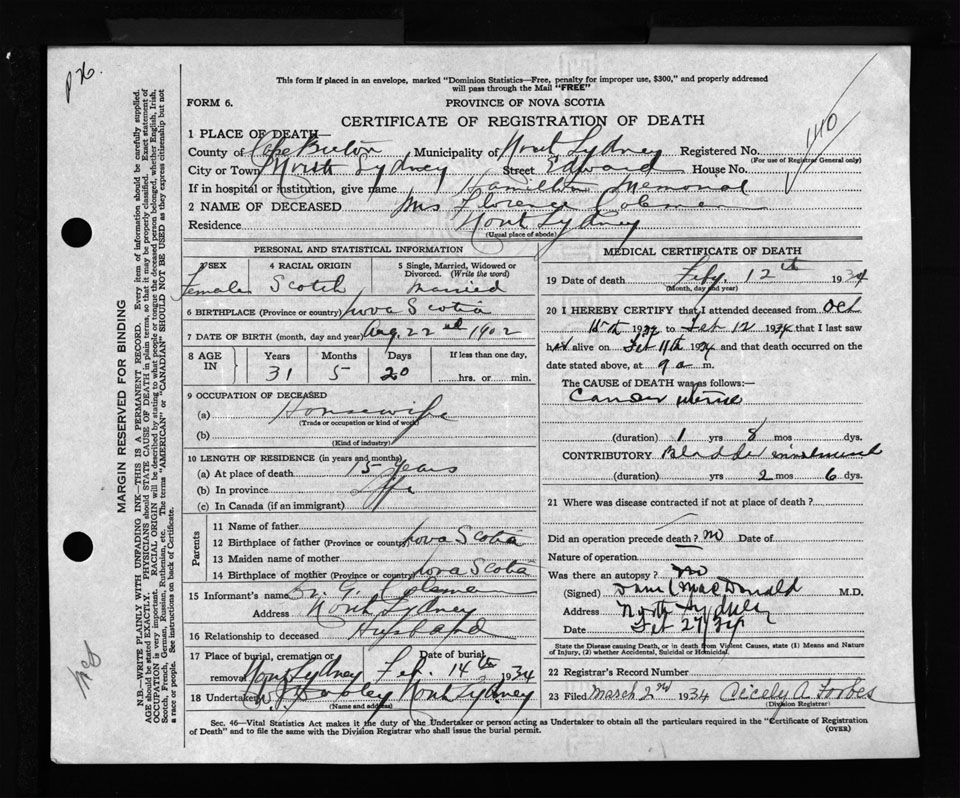 p 26.
This form if placed in an envelope, marked "Dominion Statistics—Free, penalty for improper use, $300," and properly addressed
will pass through the Mail "FREE"
FORM 6.
PROVINCE OF NOVA SCOTIA
CERTIFICATE OF REGISTRATION OF DEATH
140
1 PLACE OF DEATH—
County of Cape Breton Municipality of North Sydney Registered No.
(For use of Registrar General only)
City or Town North Sydney Street Edward House No.
If in hospital or institution, give name Hamilton Memorial
2 NAME OF DECEASED Mrs Florence Coleman
Residence North Sydney
(Usual place of abode)
PERSONAL AND STATISTICAL INFORMATION
3 SEX Female
4 RACIAL ORIGIN Scotch
5 Single, Married, Widowed or Divorced. (Write the word) Married
6 BIRTHPLACE (Province or country) Nova Scotia
7 DATE OF BIRTH (month, day and year) Aug. 22nd 1902
8 AGE IN Years Months Days If less than one day,
31 5 20 hrs. or min.
9 OCCUPATION OF DECEASED
(a) Housewife
(Trade or occupation or kind of work)
(b)
(Kind of industry)
10 LENGTH OF RESIDENCE (in years and months)
(a) At place of death 15 years
(b) In province Life
(c) In Canada (if an immigrant)
Parents
11 Name of father
12 Birthplace of father (Province or country) Nova Scotia
13 Maiden name of mother
14 Birthplace of mother (Province or country) Nova Scotia
15 Informant's name G. Coleman
Address North Sydney
16 Relationship to deceased Husband
17 Place of burial, cremation or removal Date of burial
North Sydney Feb. 14th 1934
18 Undertaker North Sydney
(Name and address)
MEDICAL CERTIFICATE OF DEATH
19 Date of death Feby. 12th 1934
(Month, day and year)
20 I HEREBY CERTIFY that I attended deceased from Oct
1932 to Feb 12 1934 that I last saw
her alive on Feb 11th 1934 and that death occurred on the
date stated above, at 9 a m.
The CAUSE OF DEATH was as follows:—
Cancer uterus
(duration) 1 yrs 8 mos dys.
CONTRIBUTORY Bladder involvement
(duration) yrs 2 mos 6 dys.
21 Where was disease contracted if not at place of death?
Did an operation precede death? no Date of
Nature of operation
Was there an autopsy? no
(Signed) MacDonald M.D.
Address North Sydney
Date Feb 27/34
State the Disease causing Death, or in death from Violent Causes, state (1) Means and Nature
of Injury, (2) whether Accidental, Suicidal or Homicidal.
22 Registrar's Record Number
23 Filed March 2nd 1934 Cicely A. Forbes
(Division Registrar)
Sec. 46—Vital Statistics Act makes it the duty of the Undertaker or person acting as Undertaker to obtain all the particulars required in the "Certificate of Registration
of Death" and to file the same with the Division Registrar who shall issue the burial permit.
(OVER)
MARGIN RESERVED FOR BINDING
N.B.—WRITE PLAINLY WITH UNFADING INK—THIS IS A PERMANENT RECORD. Every item of information should be carefully supplied.
AGE should be stated EXACTLY. PHYSICIANS should STATE CAUSE OF DEATH in plain terms, so that it may be properly classified. Exact statement of
OCCUPATION is very important. RACIAL ORIGIN will be described by stating to what people or tongue the deceased person belonged, whether English, Irish,
Scotch, French, German, Russian, Ruthenian, etc. The terms "AMERICAN" or "CANADIAN" SHOULD NOT BE USED as they express citizenship but not
a race or people. See instructions on back of Certificate.